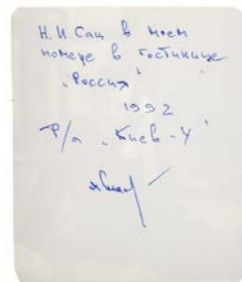 Н. И Сац в моем
номере в гостинице
„Россия“
1992
Р/а „Киев-4“